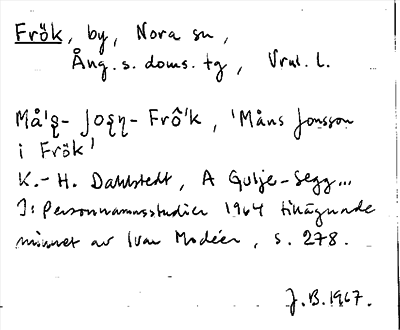 Frök, by, Nora sn,
Ång. s. doms. tg, Vrnl. l.
Må'ȿ- Joȿɳ- Frô'k, 'Måns Jonsson
i Frök'
K.-H. Dahlstedt, A Gubje-Segg...
I: Personnamnsstudier 1964 tillägnade
minnet av Ivar Modéer, s. 278.
J.B. 1967.